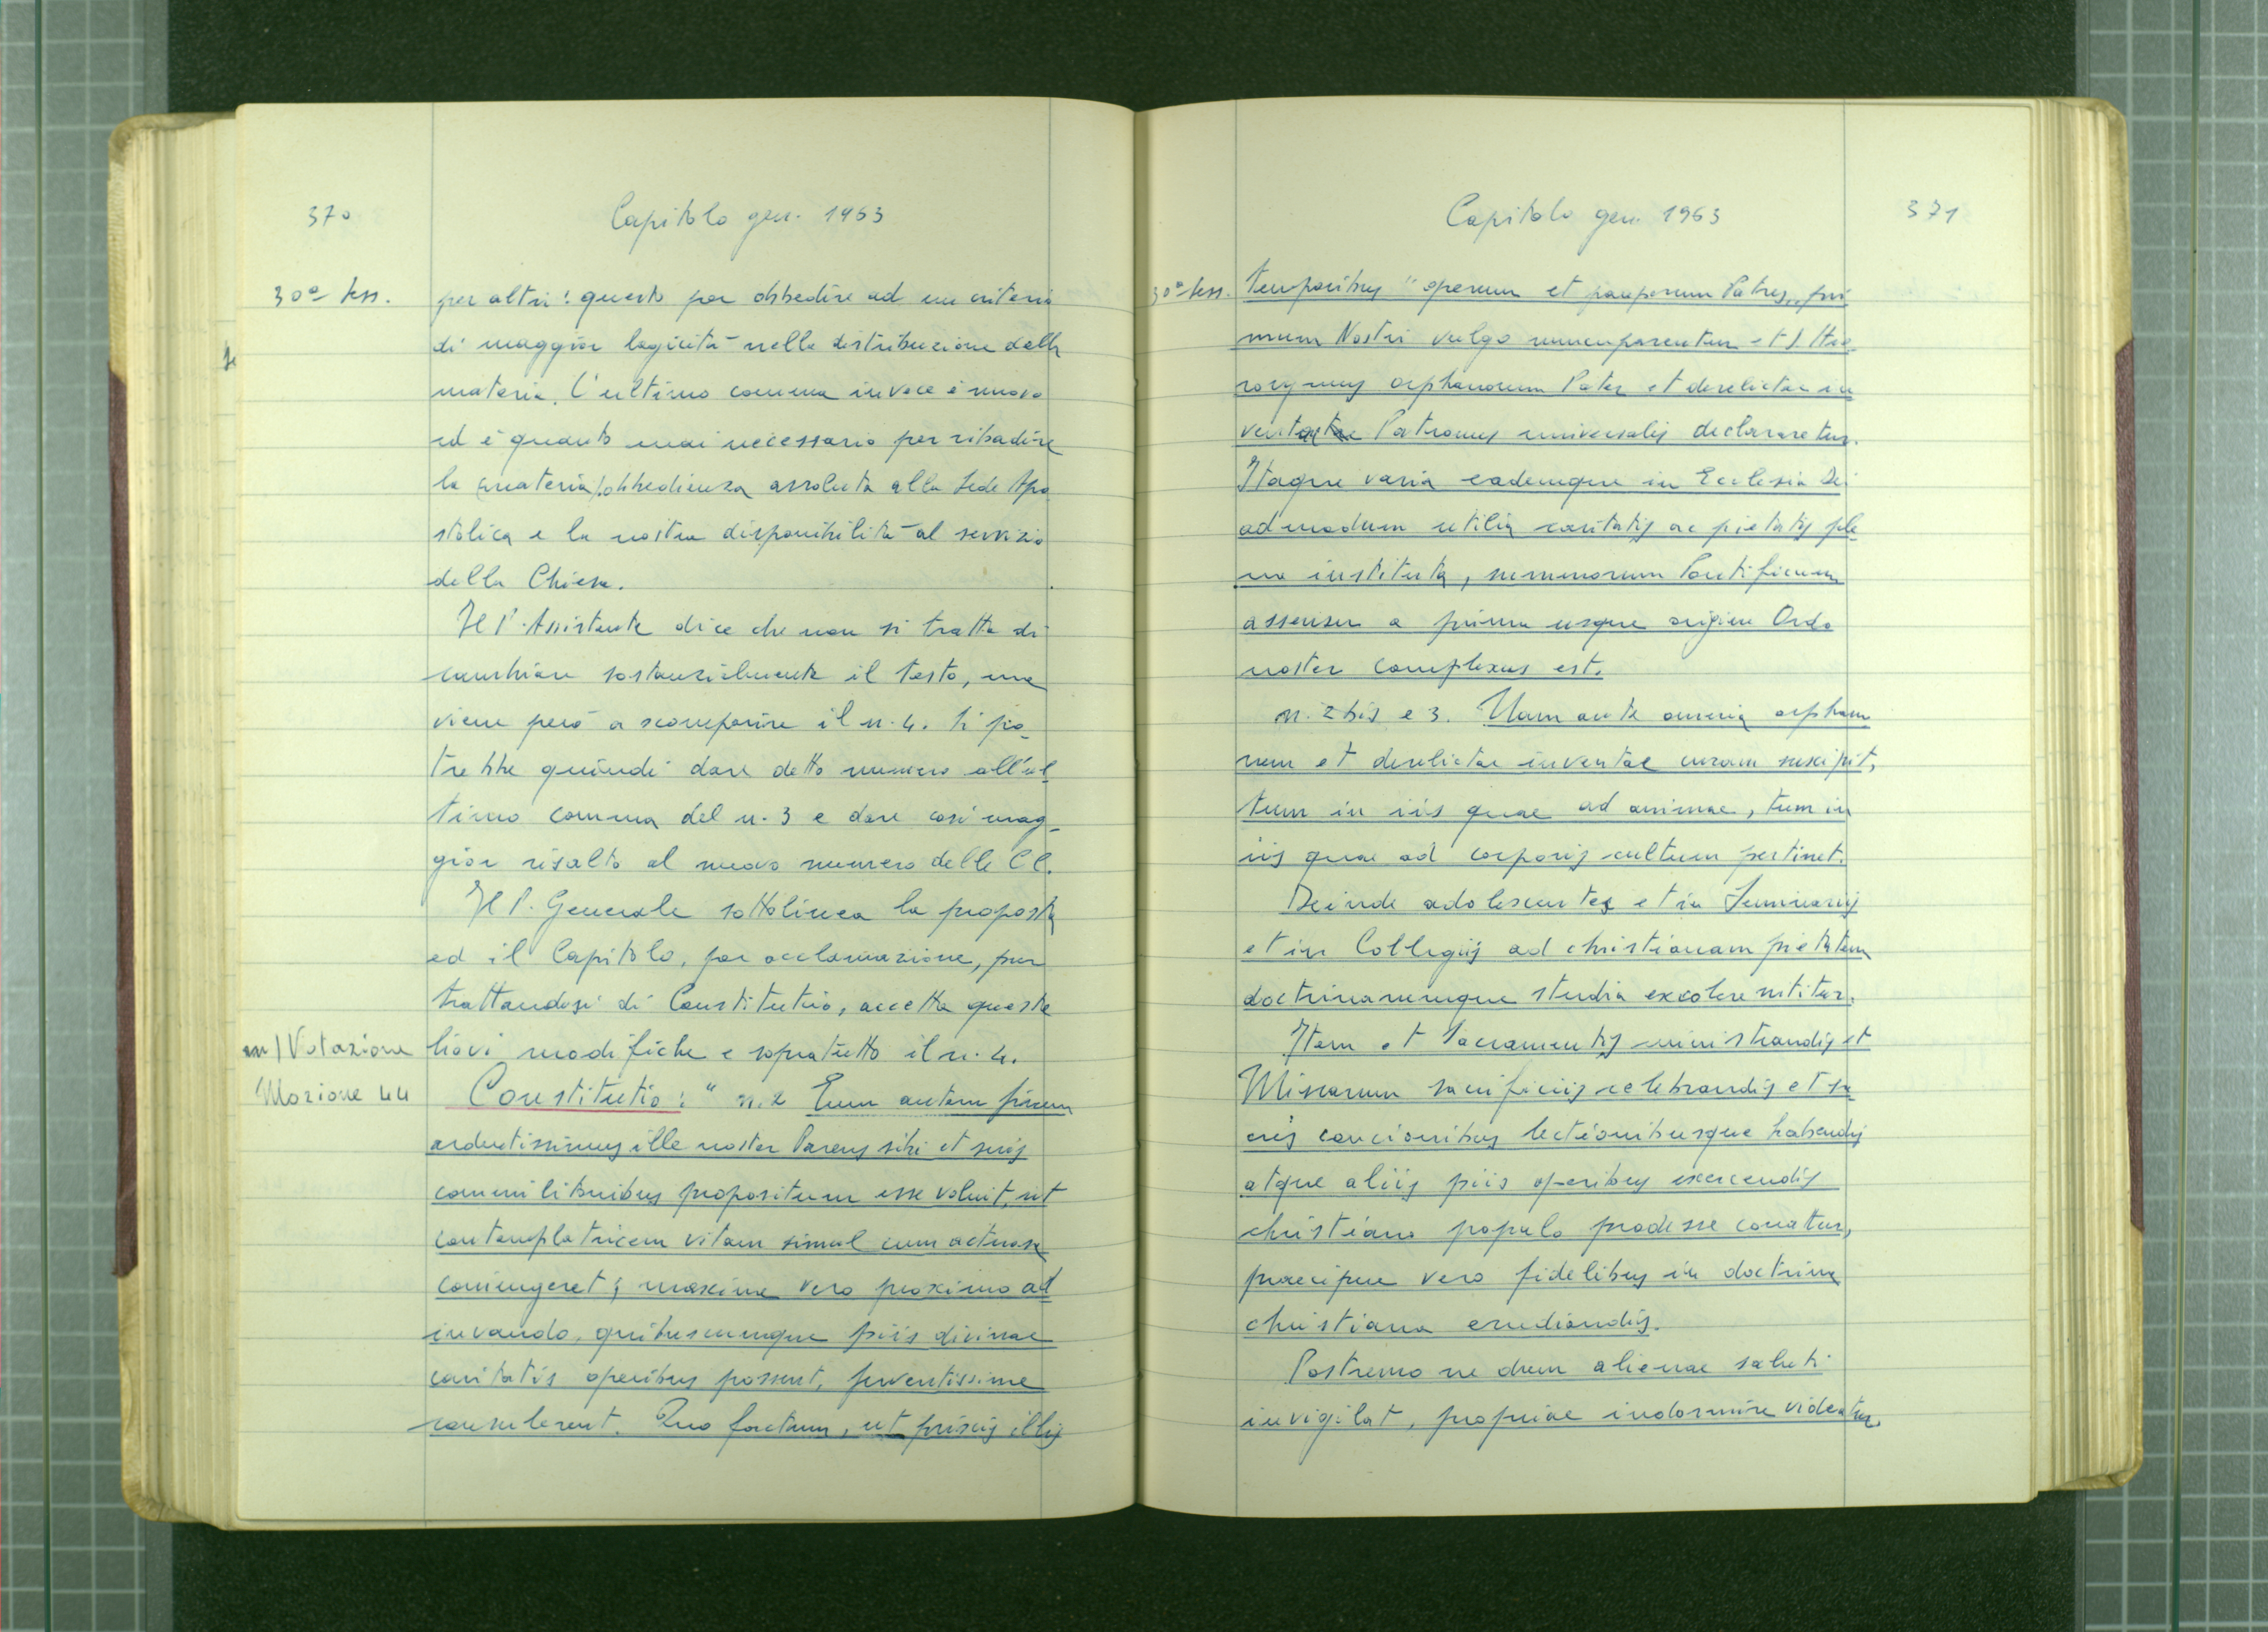 370
Capitolo gen. 1963
30ª sess.
per altri: questo per obbedire ad un criterio
di maggior logicità nella distribuzione della
materia. L'ultimo comma invece è nuovo
ed è quanto mai necessario per ribadire
la (materia) obbedienza assoluta alla Sede Apo
stolica e la nostra disponibilità al servizio
della Chiesa.
Il P. Assistente dice che non si tratta di
cambiare sostanzialmente il testo, ma
viene però a scomparire il n. 4. Si po-
trebbe quindi dare detto numero all'ul-
timo comma del n. 3 e dare così mag-
gior risalto al nuovo numero delle CC.
Il P. Generale sottolinea la proposta
ed il Capitolo, per acclamazione, pur
trattandosi di Constitutio, accetta queste
lievi modifiche e sopratutto il n. 4.
Votazione
Mozione 44
Constitutio: " n. 2 Eum autem finem
ardentissimus ille noster Parens sibi et suis
commilitonibus propositum esse voluit, ut
contemplatricem vitam simul cum actuosa
coniungeret; maxime vero proximo ad
iuvando, quibuscumque piis divinae
caritatis operibus possent, ferventissime
consulerent. Quo factum, ut priscis illis
Capitolo gen. 1963
371
30ª sess.
temporibus "operum et pauperum Patres,, pri
mum Nostri vulgo nuncuparentur et S. Hie
ronymus orphanorum Pater et derelictae iu
ventae Patronus universalis declararetur.
Itaque varia eademque in Ecclesia Dei
admodum utilia caritatis ac pietatis ple
na instituta, summorum Pontificum
assensu a prima usque origine Ordo
noster complexus est.
n. 2 bis e 3. Nam ante omnia orphano
rum et derelictae iuventae curam suscipit,
tum in iis quae ad animae, tum in
iis quae ad corporis cultum pertinet.
Deinde adolescentes et in Seminariis
et in Collegiis ad christianam pietatem
doctrinarumque studia excolere nititur.
Item et Sacramentis ministrandis et
Missarum sacrificiis celebrandis et sa
cris concionibus lectionibusque habendis
atque aliis piis operibus exercendis
christiano populo prodesse conatur,
praecipue vero fidelibus in doctrina
christiana erudiendis.
Postremo ne dum alienae saluti
invigilat, propriae indormire videatur,